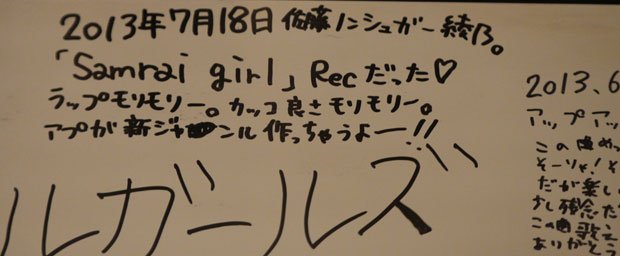 2013年7月18日 佐藤ノンシュガー綾乃。
「Samrai girl」Recだった♡
ラップモリモリー。カッコ良さモリモリー。
アプガが新ジャンル作っちゃうよー!!
ルガールズ
2013.6
アップアッ
この曲めっ
そーりゃ!そ
だが楽し
少し残念だ
この曲歌え
ありがとう